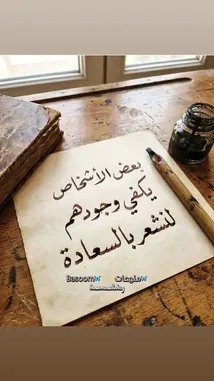 بعض الأشخاص
يكفي وجودهم
لنشعر بالسعادة
Basoom منوعات